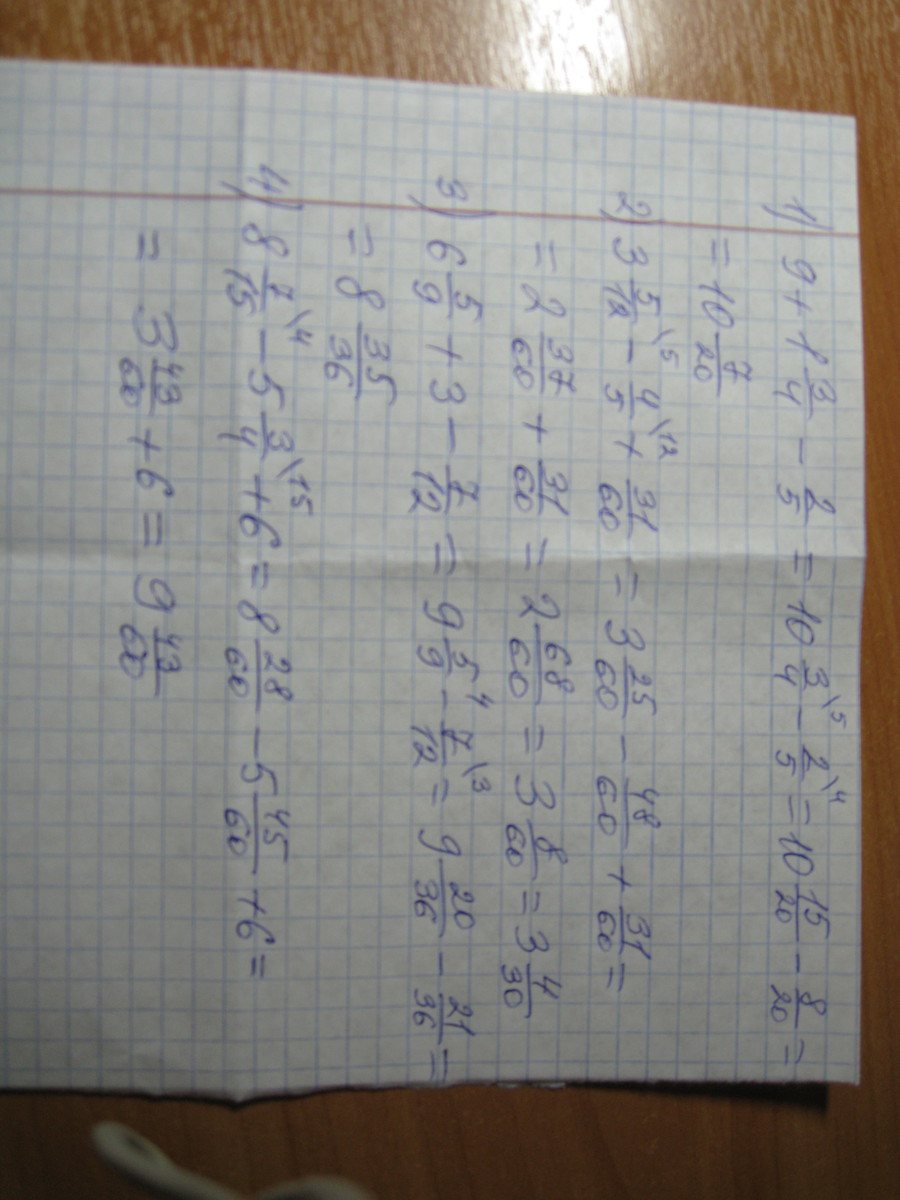 1) 9 + 1 3/4 - 2/5 = 10 3/4 \5 - 2/5 \4 = 10 15/20 - 8/20 =
= 10 7/20
2) 3 5/12 \5 - 4/5 \12 + 31/60 = 3 25/60 - 48/60 + 31/60 =
= 2 37/60 + 31/60 = 2 68/60 = 3 8/60 = 3 4/30
3) 6 5/9 + 3 - 7/12 = 9 5/9 4 - 7/12 \3 = 9 20/36 - 21/36 =
= 8 35/36
4) 8 7/15 \4 - 5 3/4 \15 + 6 = 8 28/60 - 5 45/60 + 6 =
= 3 43/60 + 6 = 9 43/60